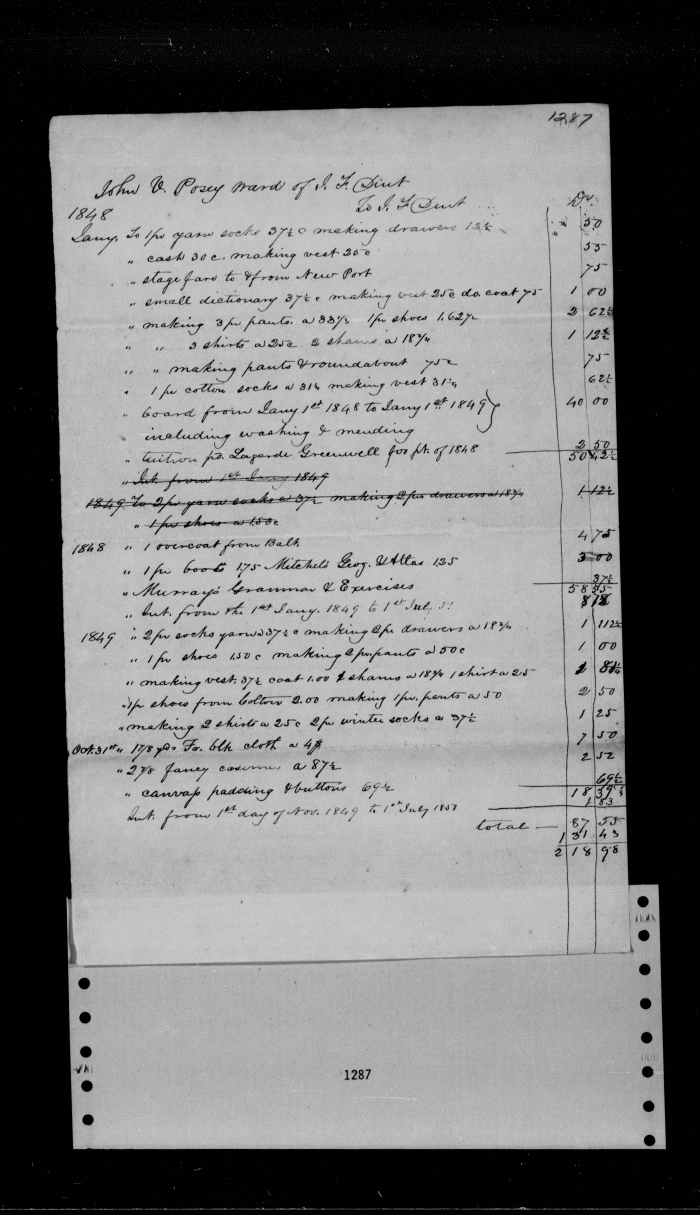 1287
John V. Posey Ward of J. F. Dent
To J. F. Dent Dr.
1848
Jany. To 1 pr yarn socks 37½ c making drawers 12½ 50
" cash 30 c. making vest 25 c 55
" stage fare to & from New Port 75
" small dictionary 37½ c making vest 25c do. coat 75 1 00
" making 3 pr pants. a 33⅓ 1 pr shoes 1.62½ 2 62½
" " 3 shirts a 25c 2 shams a 18¾ 1 12½
" " making pants & roundabout 75c 75
" 1 pr cotton socks a 31¼ making vest 31¼ 62½
" board from Jany 1st 1848 to Jany 1st 1849 } 40 00
including washing & mending
" tuition pd. Lagarde Greenwell for pt. of 1848 2 50
50 42½
" Int. from 1st Jany 1849
1849 To 2 pr yarn socks a 37½ making 2 prs drawers a 18¾ 1 12½
" 1 pr shoes a 1.50c
1848 " 1 overcoat from Balt. 4 75
" 1 pr boots 1.75 Mitchels Geog. & Atlas 1.25 3 00
" Murray's Grammar & Exercises 37½
58 55
Int. from the 1st Jany. 1849 to 1st July 51 8 78
1849 " 2 pr socks yarn a 37½ c making 2 pr drawers a 18¾ 1 112½
" 1 pr shoes 1.50 c making 2 pr. pants a 50c 1 00
" making vest. 37½ coat 1.00 shams a 18¾ 1 shirt a 25
" 1 pr shoes from Colton 2.00 making 1 pr. pants a 50 2 50
" making 2 shirts a 25c 2 pr winter socks a 37½ 1 25
Oct. 31st " 1 7/8 yds Fr. blk cloth a 4$ 7 50
" 2 7/8 fancy casimer a 87½ 2 52
" canvass padding & buttons 69½ 69½
18 39½
Int. from 1st day of Nov. 1849 to 1st July 1851 1 83
total — 87 55
1 31 43
2 18 98
1287